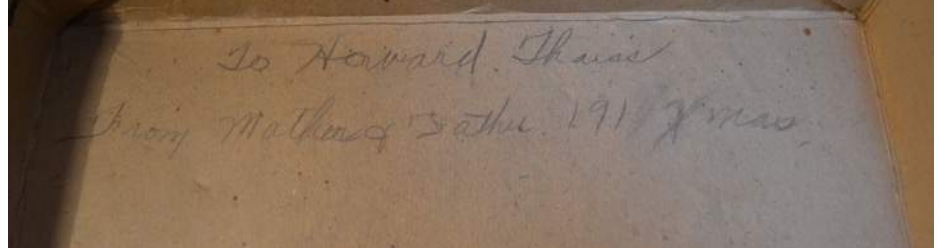 To Howard Thaias
From Mother & Father. 191 Xmas